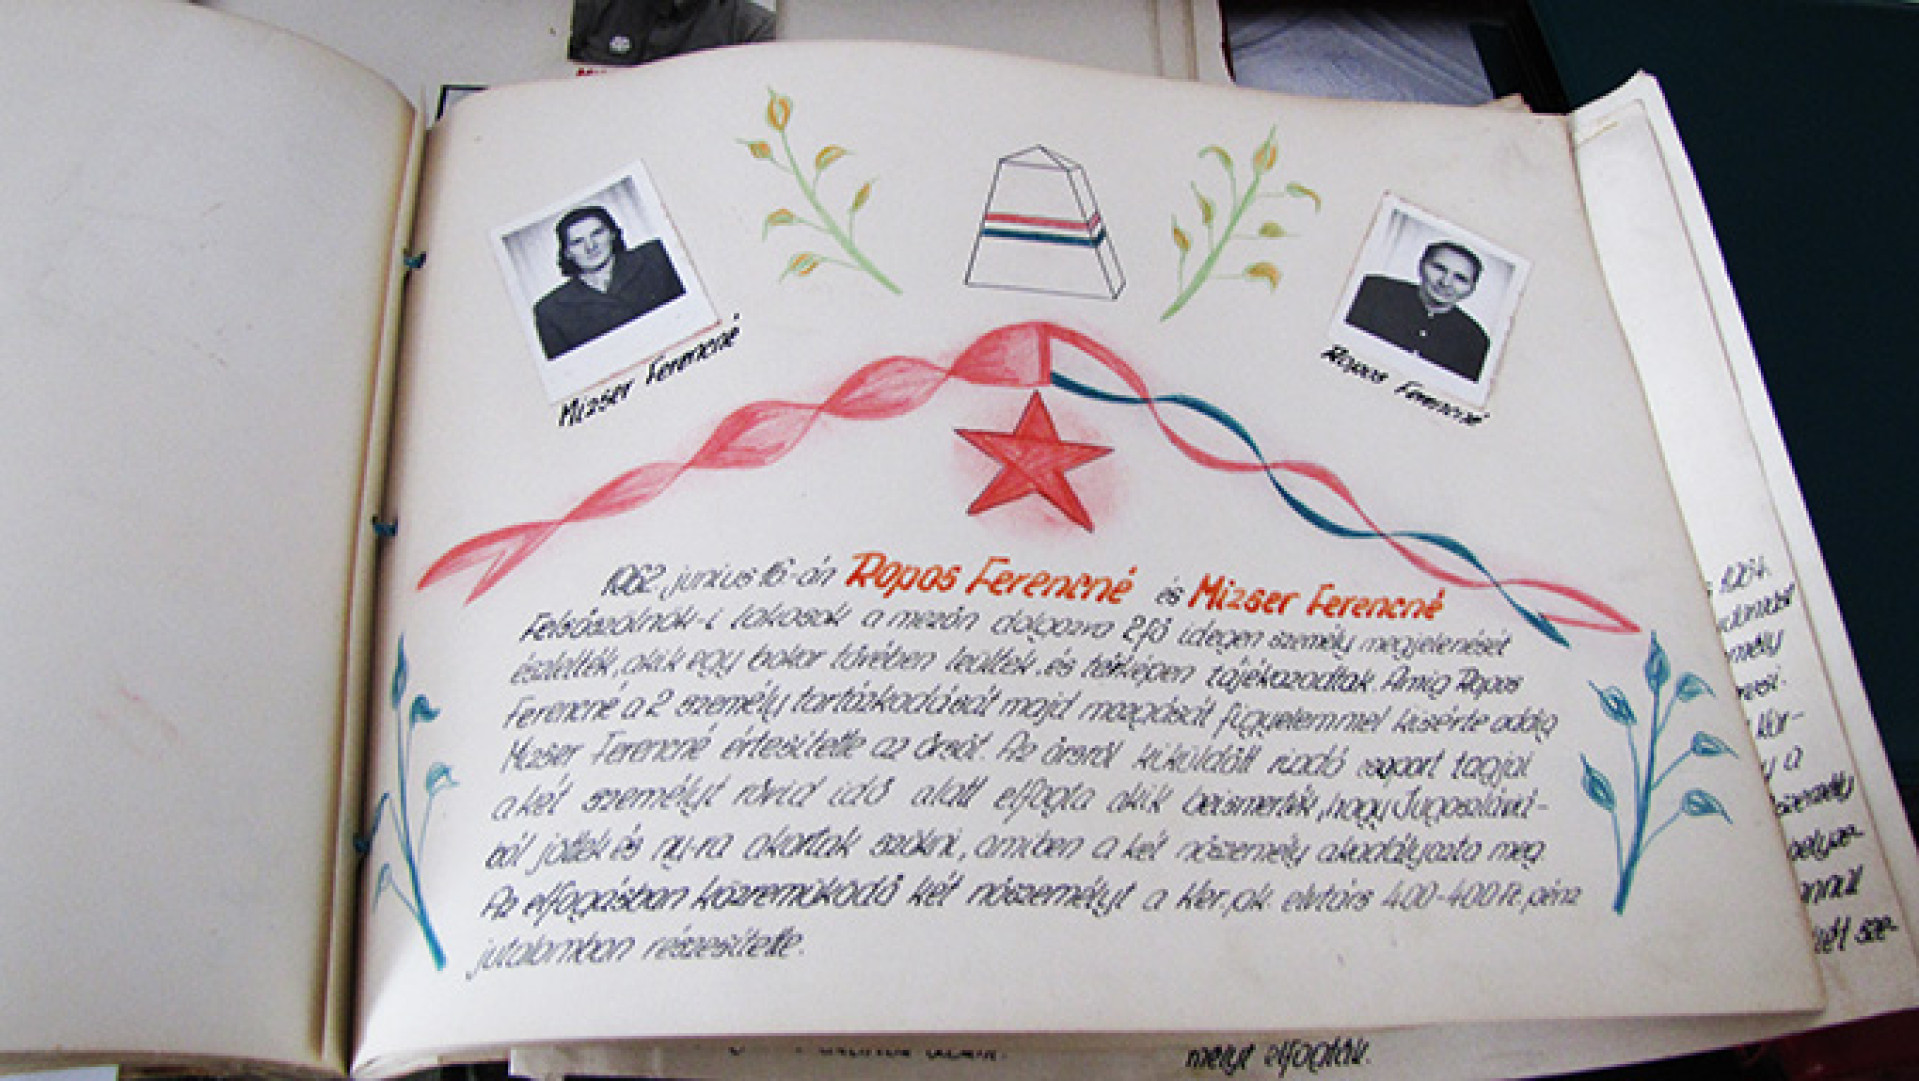 Mizser Ferencné
Ropos Ferencné
1962. junius 16-án Ropos Ferencné és Mizser Ferencné
Felsőszölnök-i lakosok a mezőn dolgozva 2 fő idegen személy megjelenését
észlelték, akik egy bokor tövében leültek, és térképen tájékozodtak. Amig Ropos
Ferencné a 2 személy tartózkodását majd mozgását figyelemmel kisérte addig
Mizser Ferencné értesitette az őrsöt. Az őrsről kiküldött riadó csoport tagjai
a két személyt rövid idő alatt elfogta akik beismerték, hogy Jugoszláviá-
ból jöttek és ny-ra akartak szökni, amiben a két nőszemély akadályozta meg.
Az elfogásban közreműködő két nőszemélyt a Ker. pk. elvtárs 400-400 Ft. pénz
jutalomban részesitette.
melyt elfogták.